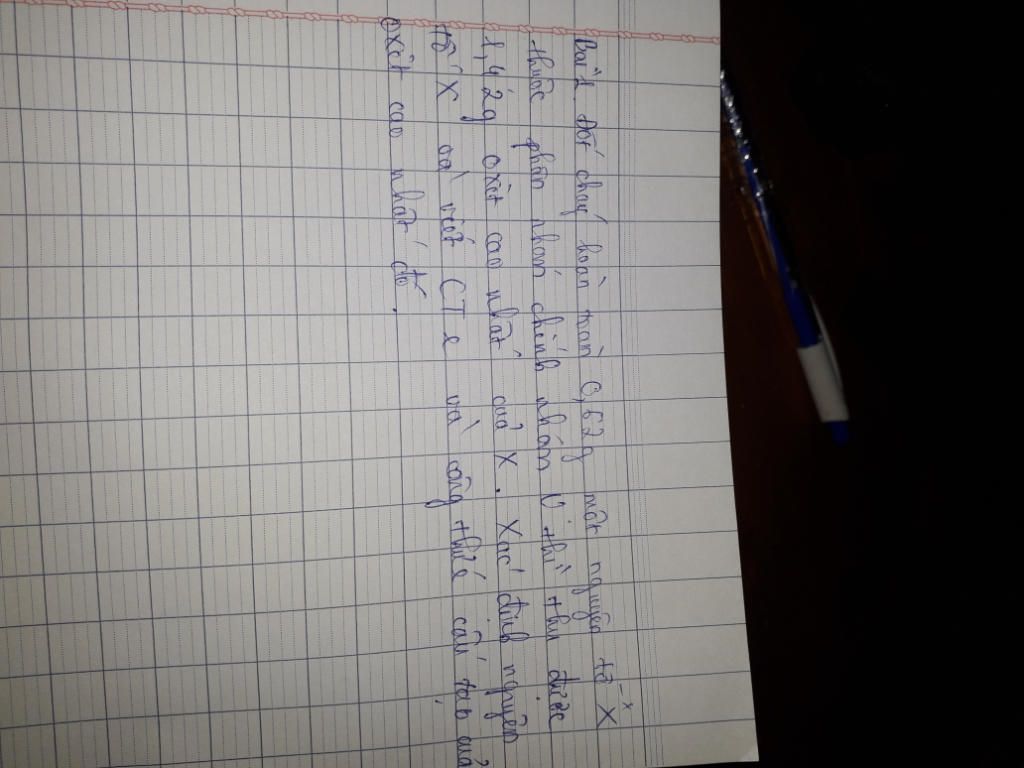 Bài 1. Đốt cháy hoàn toàn 0,62g một nguyên tố X
thuộc phân nhóm chính nhóm V thì thu được
1,42g oxit cao nhất của X. Xác định nguyên
tố X và viết CTe và công thức cấu tạo của
oxit cao nhất đó.